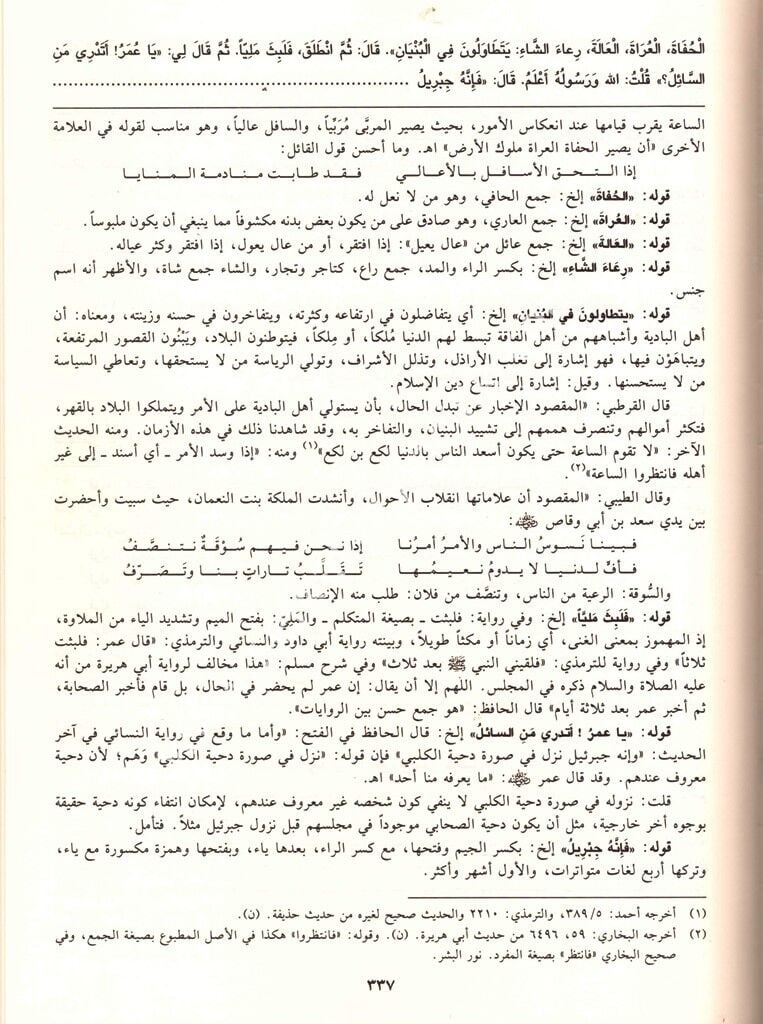 الْحُفَاةَ، الْعُرَاةَ، الْعَالَةَ، رِعاءَ الشَّاءِ: يَتَطَاوَلُونَ فِي الْبُنْيَانِ». قَالَ: ثُمَّ انْطَلَقَ، فَلَبِثَ مَلِيّاً. ثُمَّ قَالَ لِي: «يَا عُمَرُ! أَتَدْرِي مَنِ
السَّائِلُ؟» قُلْتُ: الله وَرَسُولُهُ أَعْلَمُ. قَالَ: «فَإِنَّهُ جِبْرِيلُ ................................................................
الساعة يقرب قيامها عند انعكاس الأمور، بحيث يصير المربَّى مُرَبِّياً، والسافل عالياً، وهو مناسب لقوله في العلامة
الأخرى «أن يصير الحفاة العراة ملوك الأرض» اهـ. وما أحسن قول القائل:
إذا التـحـق الأسـافـل بـالأعـالـي فـقـد طـابـت مـنـادمـة الـمـنـايـا
قوله: «الحُفاة» إلخ: جمع الحافي، وهو من لا نعل له.
قوله: «العُراة» إلخ: جمع العاري، وهو صادق على من يكون بعض بدنه مكشوفاً مما ينبغي أن يكون ملبوساً.
قوله: «العالة» إلخ: جمع عائل من «عال يعيل»: إذا افتقر، أو من عال يعول، إذا افتقر وكثر عياله.
قوله: «رِعَاءَ الشَّاءِ» إلخ: بكسر الراء والمد، جمع راع، كتاجر وتجار، والشاء جمع شاة، والأظهر أنه اسم
جنس.
قوله: «يتطاولونَ في البُنيانِ» إلخ: أي يتفاضلون في ارتفاعه وكثرته، ويتفاخرون في حسنه وزينته، ومعناه: أن
أهل البادية وأشباههم من أهل الفاقة تبسط لهم الدنيا مُلكاً، أو مِلكاً، فيتوطنون البلاد، ويَبْنُون القصور المرتفعة،
ويتباهَوْن فيها، فهو إشارة إلى تغلب الأراذل، وتذلل الأشراف، وتولي الرياسة من لا يستحقها، وتعاطي السياسة
من لا يستحسنها. وقيل: إشارة إلى اتساع دين الإسلام.
قال القرطبي: «المقصود الإخبار عن تبدل الحال، بأن يستولي أهل البادية على الأمر ويتملكوا البلاد بالقهر،
فتكثر أموالهم وتنصرف هممهم إلى تشييد البنيان، والتفاخر به، وقد شاهدنا ذلك في هذه الأزمان. ومنه الحديث
الآخر: «لا تقوم الساعة حتى يكون أسعد الناس بالدنيا لكع بن لكع»(١) ومنه: «إذا وسد الأمر ـ أي أسند ـ إلى غير
أهله فانتظروا الساعة»(٢).
وقال الطيبي: «المقصود أن علاماتها انقلاب الأحوال، وأنشدت الملكة بنت النعمان، حيث سبيت وأحضرت
بين يدي سعد بن أبي وقاص رضي الله عنه:
فـبـيـنـا نَـسـوسُ الـنـاس والأمـرُ أمـرُنـا إذا نـحـن فـيـهـم سُـوْقَـةٌ نـتـنـصَّـفُ
فـأفٍّ لـدنـيـا لا يـدومُ نـعـيـمُـهـا تَـقَـلَّـبُ تـاراتٍ بـنـا وتَـصَـرّفُ
والسُّوقة: الرعية من الناس، وتنصَّف من فلان: طلب منه الإنصاف.
قوله: «فَلَبِثَ مَليَّاً» إلخ: وفي رواية: فلبثت ـ بصيغة المتكلم ـ والمَليّ: بفتح الميم وتشديد الياء من الملاوة،
إذ المهموز بمعنى الغنى، أي زماناً أو مكثاً طويلاً، وبينته رواية أبي داود والنسائي والترمذي: «قال عمر: فلبثت
ثلاثاً» وفي رواية للترمذي: «فلقيني النبي ﷺ بعد ثلاث» وفي شرح مسلم: «هذا مخالف لرواية أبي هريرة من أنه
عليه الصلاة والسلام ذكره في المجلس. اللهم إلا أن يقال: إن عمر لم يحضر في الحال، بل قام فأخبر الصحابة،
ثم أخبر عمر بعد ثلاثة أيام» قال الحافظ: «هو جمع حسن بين الروايات».
قوله: «يا عمرُ ! أتدري مَنِ السائلُ» إلخ: قال الحافظ في الفتح: «وأما ما وقع في رواية النسائي في آخر
الحديث: «وإنه جبرئيل نزل في صورة دحية الكلبي» فإن قوله: «نزل في صورة دحية الكلبي» وَهَم؛ لأن دحية
معروف عندهم. وقد قال عمر رضي الله عنه: «ما يعرفه منا أحد» اهـ.
قلت: نزوله في صورة دحية الكلبي لا ينفي كون شخصه غير معروف عندهم، لإمكان انتفاء كونه دحية حقيقة
بوجوه أخر خارجية، مثل أن يكون دحية الصحابي موجوداً في مجلسهم قبل نزول جبرئيل مثلاً. فتأمل.
قوله: «فَإنَّهُ جِبْرِيلُ» إلخ: بكسر الجيم وفتحها، مع كسر الراء، بعدها ياء، وبفتحها وهمزة مكسورة مع ياء،
وتركها أربع لغات متواترات، والأول أشهر وأكثر.
(١) أخرجه أحمد: ٣٨٩/٥، والترمذي: ٢٢١٠ والحديث صحيح لغيره من حديث حذيفة. (ن).
(٢) أخرجه البخاري: ٥٩، ٦٤٩٦ من حديث أبي هريرة. (ن). وقوله: «فانتظروا» هكذا في الأصل المطبوع بصيغة الجمع، وفي
صحيح البخاري «فانتظر» بصيغة المفرد. نور البشر.
٣٣٧